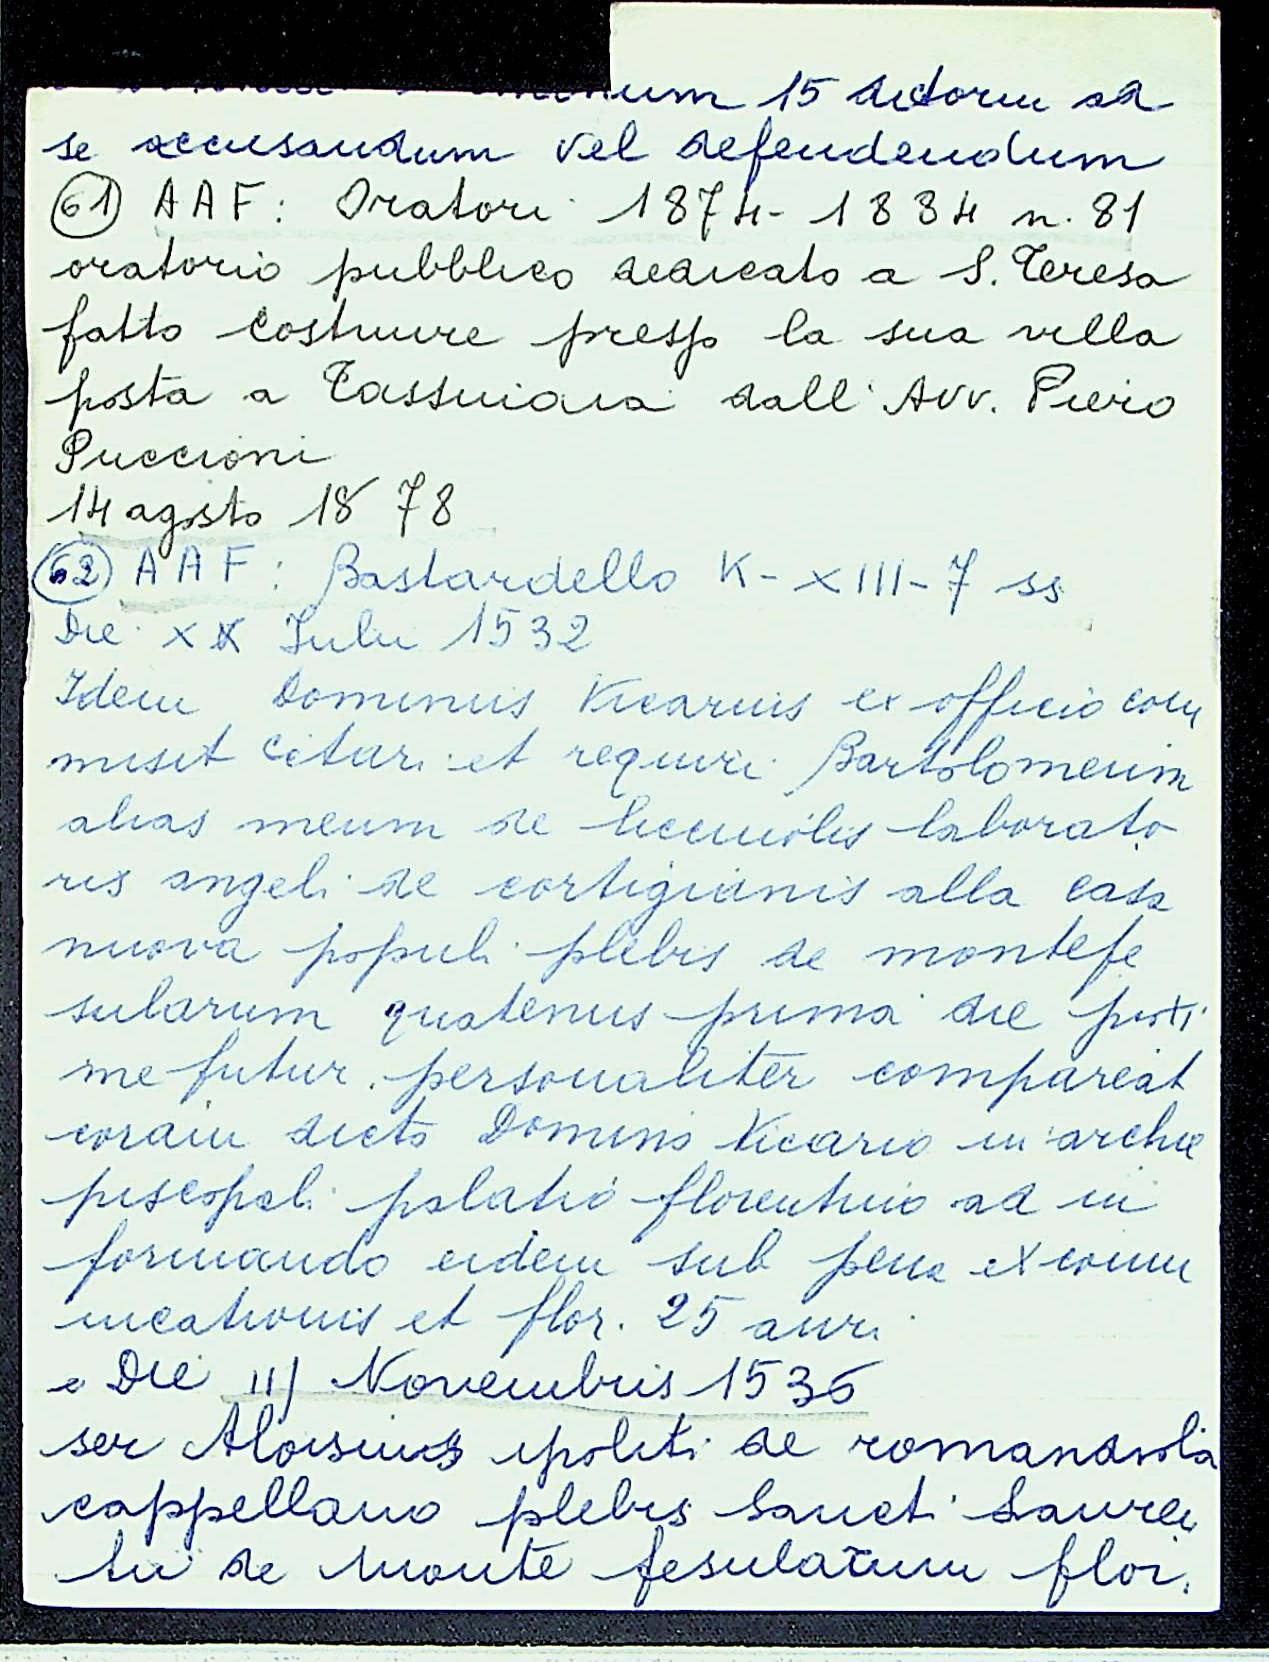 15 dictorum ad
se accusandum vel defendendum
61) AAF: Oratori 1874-1884 n. 81
oratorio pubblico dedicato a S. Teresa
fatto costruire presso la sua villa
posta a Tassinaia dall' Avv. Piero
Puccioni
14 agosto 1878
62) AAF: Bastardello K-XIII-7 ss
Die XX Iulii 1532
Idem Dominus Vicarius ex officio com
misit citari et requiri Bartolomeum
alias meum de laborato
ris angeli de cortigianis alla casa
nuova populi plebis de montefe
sularum quatenus prima die proxi
me futur. personaliter compareat
coram dicto Domino Vicario in archie
piscopali palatio florentino ad in
formando eidem sub pena excomu
nicationis et flor. 25 auri
e Die III Novembris 1536
ser Aloisius ipoliti de romandiola
cappellano plebis Sancti Lauren
tii de Monte fesularum flor.